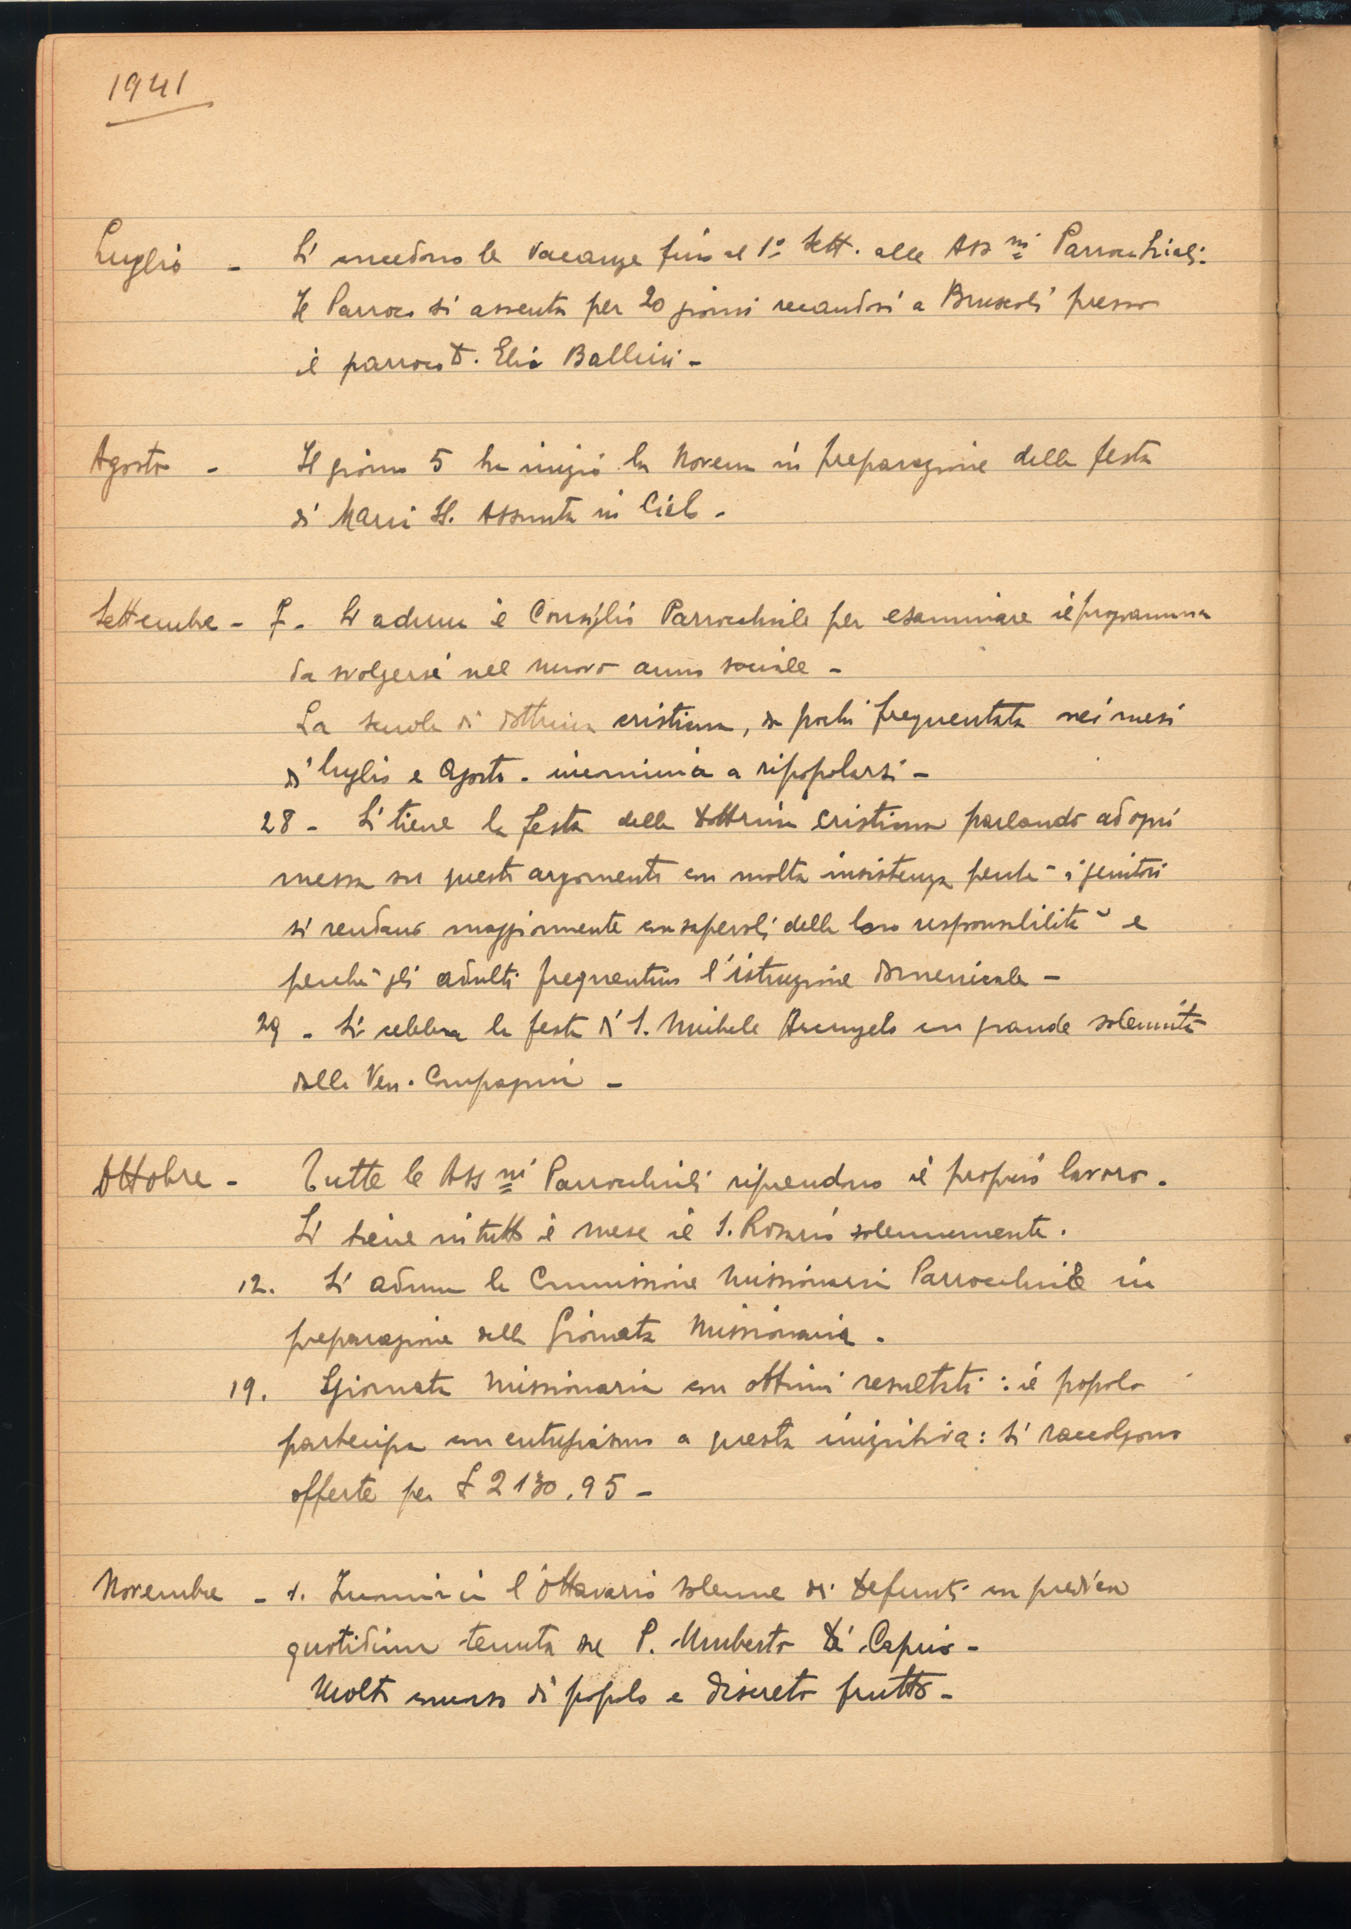 1941
Luglio - Si concedono le vacanze fino al 1º Sett. alle Assni Parrocchiali.
Il Parroco si assenta per 20 giorni recandosi a Bruscoli presso
il parroco D. Elio Ballini -
Agosto - Il giorno 5 ha inizio la Novena in preparazione della festa
di Maria SS. Assunta in Cielo -
Settembre - 7 - Si aduna il Consiglio Parrocchiale per esaminare il programma
da svolgersi nel nuovo anno sociale -
La scuola di dottrina cristiana, da pochi frequentata nei mesi
di luglio e Agosto - incomincia a ripopolarsi -
28 - Si tiene la festa della Dottrina Cristiana parlando ad ogni
messa su questo argomento con molta insistenza perché i genitori
si rendano maggiormente consapevoli della loro responsabilità e
perché gli adulti frequentino l'istruzione domenicale -
29 - Si celebra la festa di S. Michele Arcangelo con grande solennità
dalla Ven. Compagnia -
Ottobre - Tutte le Assni Parrocchiali riprendono il proprio lavoro.
Si tiene in tutto il mese il S. Rosario solennemente.
12. Si aduna la Commissione Missionaria Parrocchiale in
preparazione della Giornata Missionaria.
19. Giornata Missionaria con ottimi resultati: il popolo
partecipa con entusiasmo a questa iniziativa: si raccolgono
offerte per £ 2130,95 -
Novembre - 1. Incomincia l'Ottavario solenne dei Defunti con predica
quotidiana tenuta dal P. Umberto Di Caprio -
Molto concorso di popolo e discreto frutto -